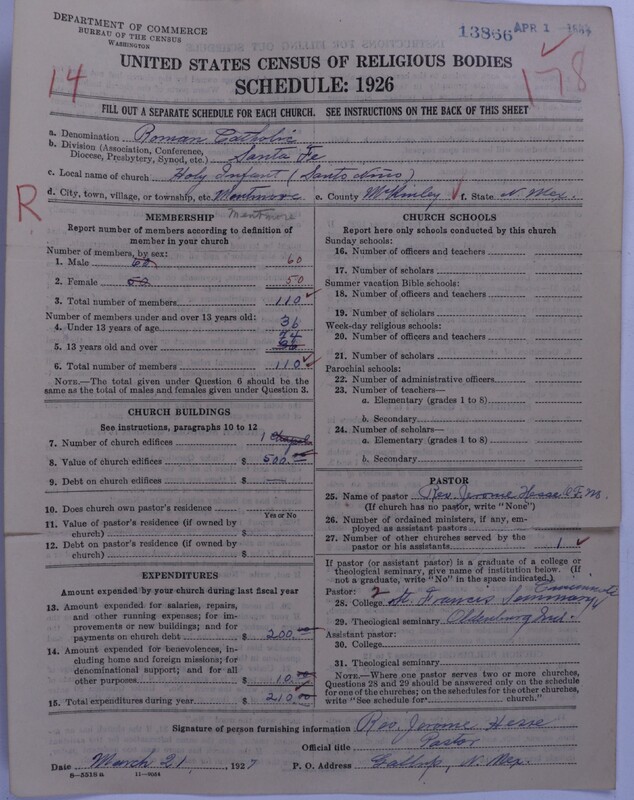 DEPARTMENT OF COMMERCE
BUREAU OF THE CENSUS
WASHINGTON
13866 APR 1
UNITED STATES CENSUS OF RELIGIOUS BODIES
SCHEDULE: 1926
14
178
FILL OUT A SEPARATE SCHEDULE FOR EACH CHURCH. SEE INSTRUCTIONS ON THE BACK OF THIS SHEET
a. Denomination Roman Catholic
b. Division (Association, Conference, Diocese, Presbytery, Synod, etc.) Santa Fe
c. Local name of church Holy Infant (Santo Niño)
d. City, town, village, or township, etc. Mentmore e. County McKinley f. State N. Mex.
R
Mentmore
MEMBERSHIP
Report number of members according to definition of
member in your church
Number of members, by sex:
1. Male 60 60
2. Female 50 50
3. Total number of members 110
Number of members under and over 13 years old:
4. Under 13 years of age 36
74
5. 13 years old and over
6. Total number of members 110
NOTE.—The total given under Question 6 should be
same as the total of males and females given under Question 3.
CHURCH BUILDINGS
See instructions, paragraphs 10 to 12
7. Number of church edifices 1 chapel
8. Value of church edifices $ 500.00
9. Debt on church edifices $
10. Does church own pastor's residence
Yes or No
11. Value of pastor's residence (if owned by
church) $
12. Debt on pastor's residence (if owned by
church) $
EXPENDITURES
Amount expended by your church during last fiscal year
13. Amount expended for salaries, repairs,
and other running expenses; for im-
provements or new buildings; and for
payments on church debt $ 200.00
14. Amount expended for benevolences, in-
cluding home and foreign missions; for
denominational support; and for all
other purposes $ 10.00
15. Total expenditures during year $ 210.00
CHURCH SCHOOLS
Report here only schools conducted by this church
Sunday schools:
16. Number of officers and teachers
17. Number of scholars
Summer vacation Bible schools:
18. Number of officers and teachers
19. Number of scholars
Week-day religious schools:
20. Number of officers and teachers
21. Number of scholars
Parochial schools:
22. Number of administrative officers
23. Number of teachers—
a. Elementary (grades 1 to 8)
b. Secondary
24. Number of scholars—
a. Elementary (grades 1 to 8)
b. Secondary
PASTOR
25. Name of pastor Rev. Jerome Hesse O.F.M.
(If church has no pastor, write "None")
26. Number of ordained ministers, if any, em-
ployed as assistant pastors
27. Number of other churches served by the
pastor or his assistants 1
If pastor (or assistant pastor) is a graduate of a college or
theological seminary, give name of institution below. (If
not a graduate, write "No" in the space indicated.)
Pastor: 2 Cincinnati O
28. College St. Francis Seminary
29. Theological seminary Oldenburg Ind.
Assistant pastor:
30. College
31. Theological seminary
NOTE.—Where one pastor serves two or more churches,
Questions 28 and 29 should be answered only on the schedule
for one of the churches; on the schedules for the other churches,
write "See schedule for church."
Signature of person furnishing information Rev. Jerome Hesse
Official title Pastor
Date March 21, 1927 P. O. Address Gallup, N. Mex.
8—5518 a 11—9064